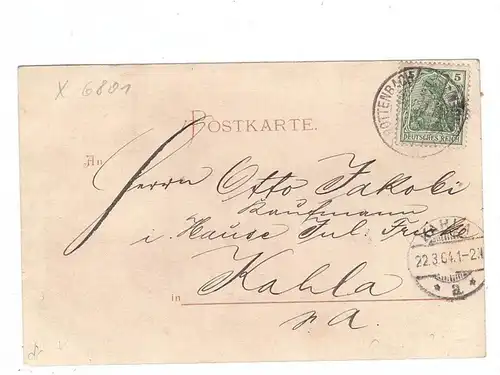 x 6801
POSTKARTE.
ROTTENBACH
5
DEUTSCHES REICH
An
Herrn Otto Jakobi
Kaufmann
i Hause Jul. Fricke
in Kahla
s. A.
KAHLA
22.3.04.1-2N
* a *